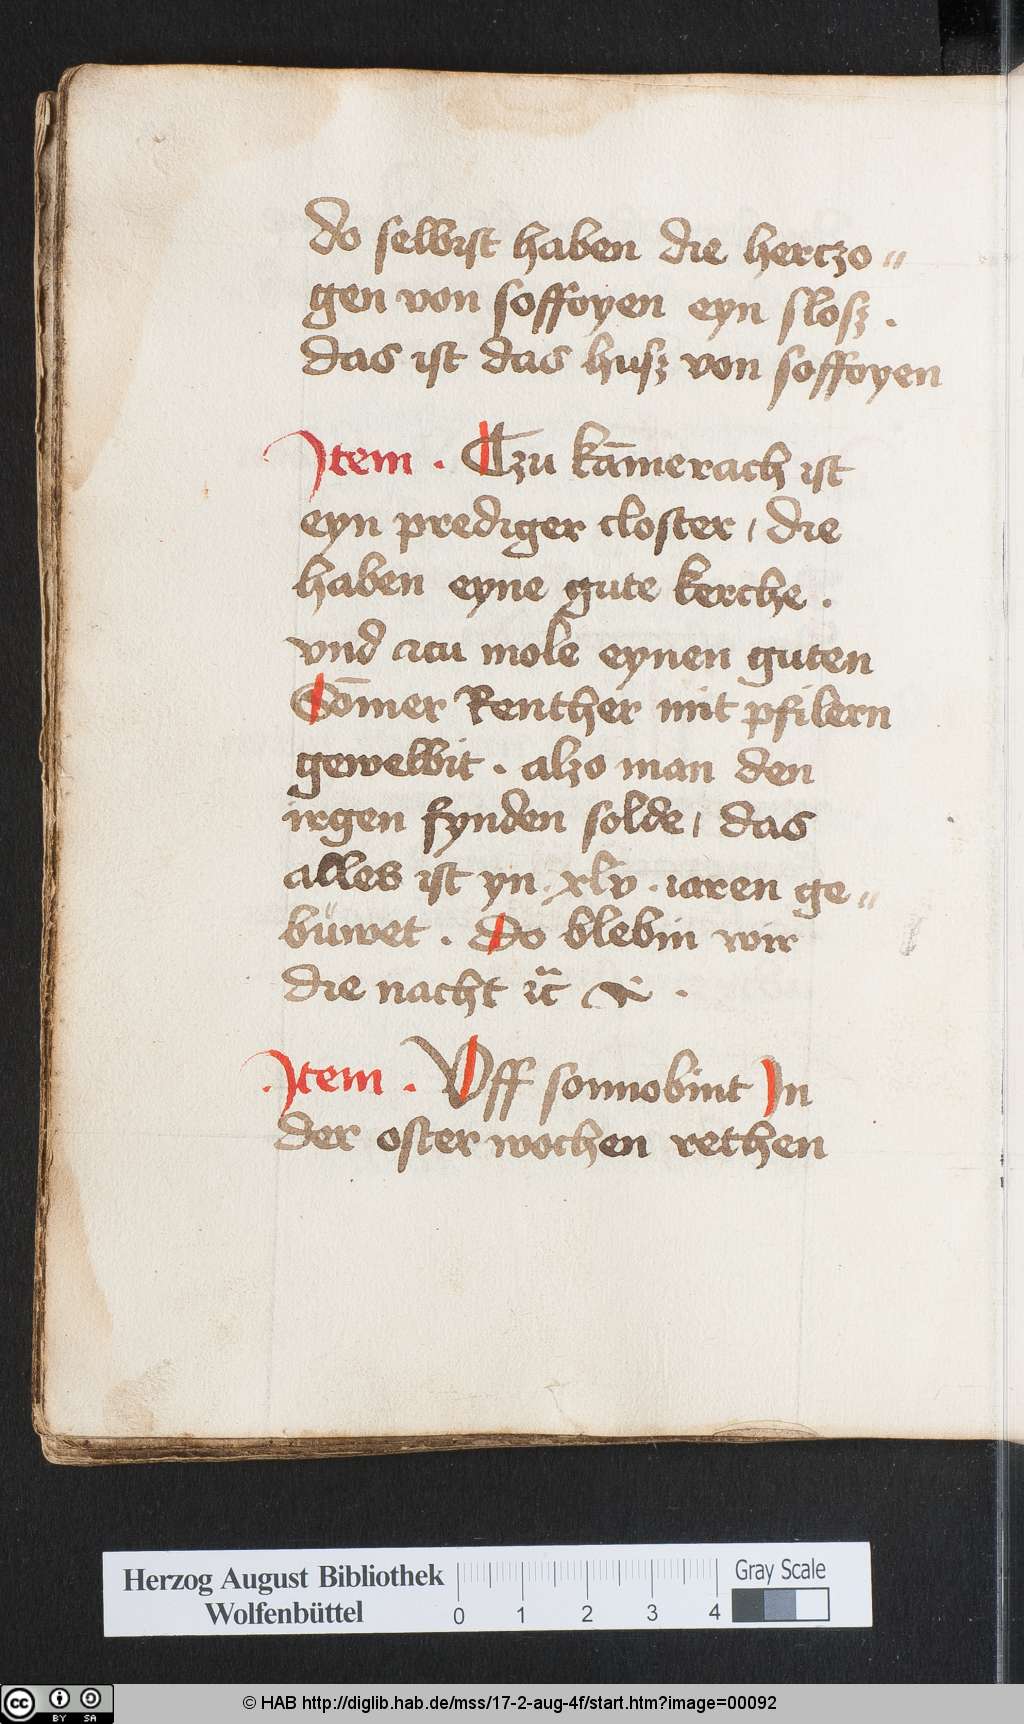 do selbist haben die herczo„
gen von soffoyen eyn slosz.
das ist das husz von soffoyen
Jtem. Czu kāmerach ist
eyn prediger closter / die
haben eyne gute kerche.
vnd zcu mole eynen guten
Sōmer Renther mit pfilern
gewelbit. alzo man den
irgen fynden solde / das
alles ist yn. xlv. iaren ge„
büwet. do blebin wir
die nacht
.Jtem. Vff sonnobint Jn
der oster wochen rethen
Herzog August Bibliothek
Wolfenbüttel
0 1 2 3 4
Gray Scale
cc BY SA
© HAB http://diglib.hab.de/mss/17-2-aug-4f/start.htm?image=00092